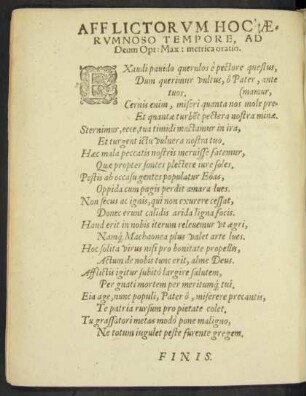 AFFLICTORVM HOC ÆRVMNOSO TEMPORE, AD
Deum Opt: Max: metrica oratio.
EXaudi pavido querulos è pectore questus,
Dum querimur vultus, ô Pater, ante
tuos, (mamur,
Cernis enim, miseri quanta nos mole pre-
Et quantæ turbẽt pectora nostra minæ.
Sternimur, eeve, tua timidi mactamur in ira,
Et turgent ictu vulnera nostra tuo,
Hæc mala peccatis nostris meruisse fatemur,
Quæ propter fontes plectere iure soles,
Pestis ab occasu gentes populatur Eoas,
Oppida cum pagis perdit amara lues.
Non secus ac ignis, qui non exurere cessat,
Donec erunt calidis arida ligna focis.
Haud erit in nobis iterum releuemur vt ægri,
Namq́; Machaonea plus valet arte lues.
Hoc solita virus nisi pro bonitate propellas,
Actum de nobis tunc erit, alme Deus.
Afflictis igitur subitò largire salutem,
Per gnati mortem per meritumq́; tui.
Eia age, nunc populi, Pater ô, miserere precantis,
Te patria rursùm pro pietate colet.
Tu grassatori metas modò pone maligno,
Ne totum iugulet peste furente gregem.
FINIS.